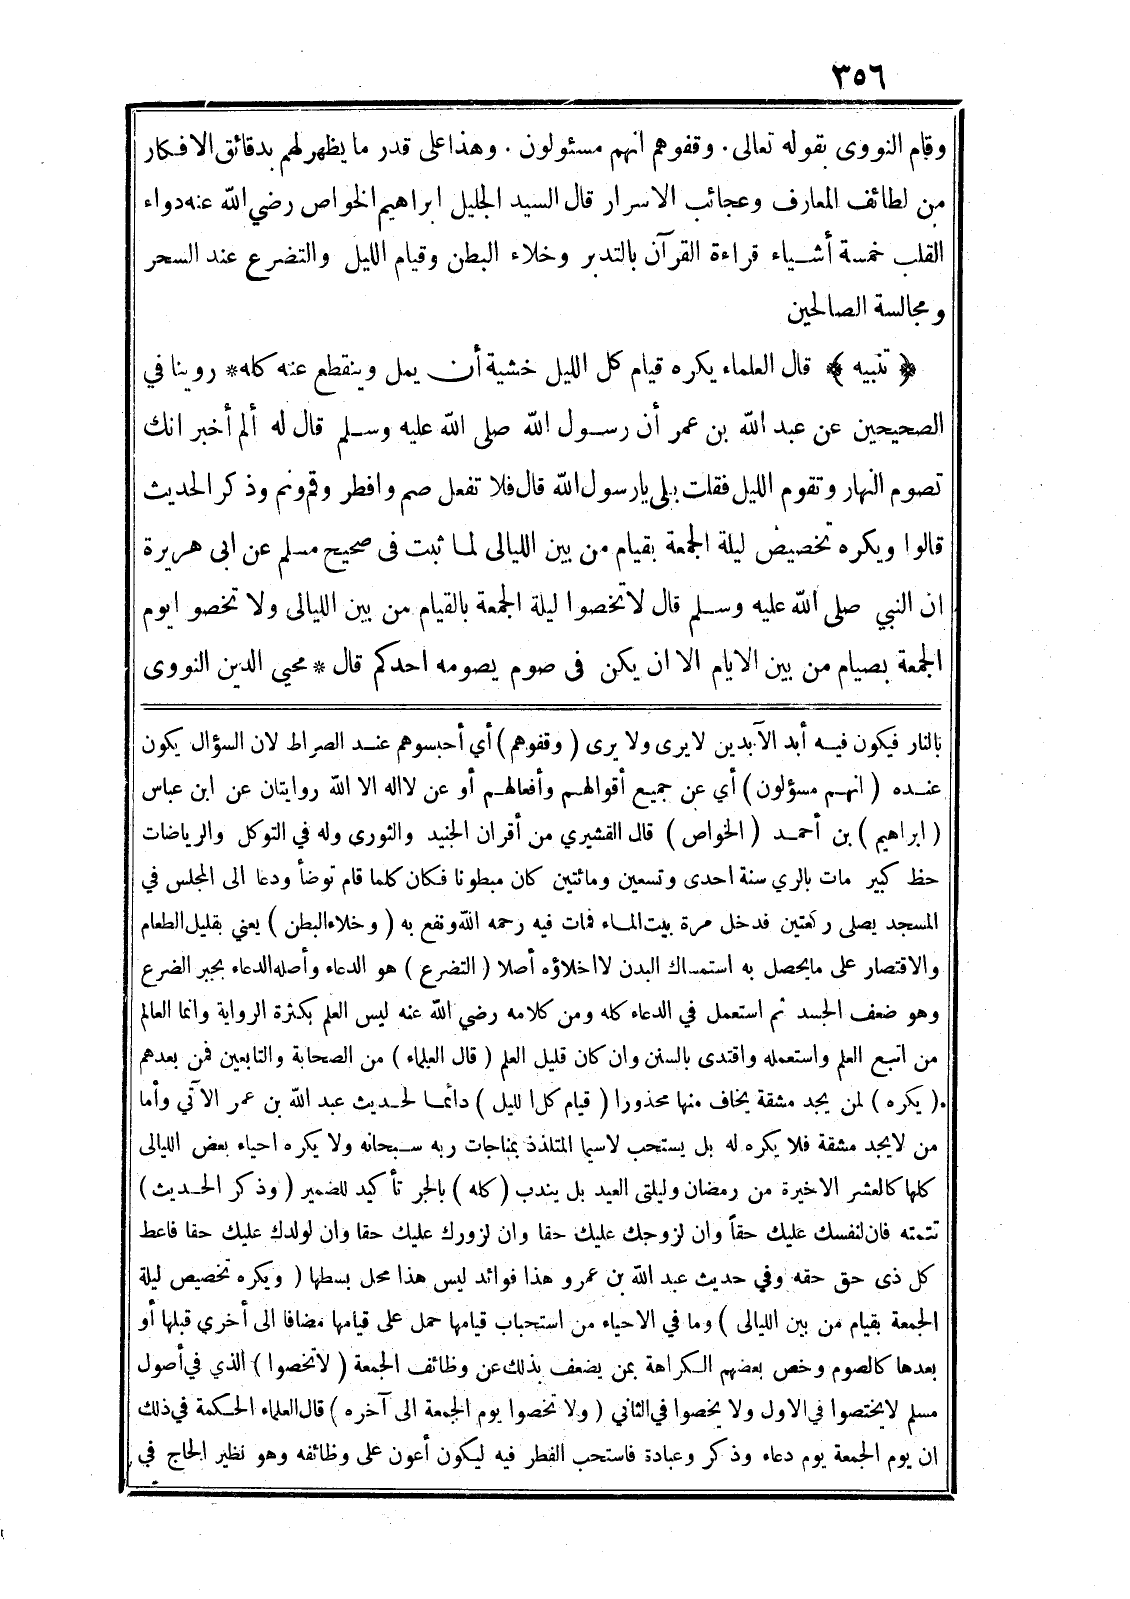 ٣٥٦
وقام النووى بقوله تعالى . وقفوهم انهم مسئولون . وهذا على قدر ما يظهر لهم بدقائق الافكار
من لطائف المعارف وعجائب الاسرار قال السيد الجليل ابراهيم الخواص رضي الله عنه دواء
القلب خمسة أشياء قراءة القرآن بالتدبر وخلاء البطن وقيام الليل والتضرع عند السحر
ومجالسة الصالحين
﴿ تنبيه ﴾ قال العلماء يكره قيام كل الليل خشية أن يمل وينقطع عنه كله* روينا في
الصحيحين عن عبد الله بن عمر أن رسول الله صلى الله عليه وسلم قال له ألم أخبر انك
تصوم النهار وتقوم الليل فقلت بلى يا رسول الله قال فلا تفعل صم وافطر وقم ونم وذكر الحديث
قالوا ويكره تخصيص ليلة الجمعة بقيام من بين الليالى لما ثبت فى صحيح مسلم عن ابى هريرة
ان النبي صلى الله عليه وسلم قال لا تخصوا ليلة الجمعة بالقيام من بين الليالى ولا تخصو ايوم
الجمعة بصيام من بين الايام الا ان يكن فى صوم يصومه احدكم قال * محيى الدين النووى
بالنار فيكون فيه أبد الآبدين لا يرى ولا يرى ( وقفوهم ) أي أحبسوهم عند الصراط لان السؤال يكون
عنده ( انهم مسؤلون ) أي عن جميع أقوالهم وأفعالهم أو عن لااله الا الله روايتان عن ابن عباس
( ابراهيم ) بن أحمد ( الخواص ) قال القشيري من أقران الجنيد والثورى وله في التوكل والرياضات
حظ كبير مات بالري سنة احدى وتسعين ومائتين كان مبطونا فكان كلما قام توضأ ودعا الى المجلس في
المسجد يصلى ركعتين فدخل مرة بيت الماء فمات فيه رحمه الله ونفع به ( وخلاء البطن ) يعني بقليل الطعام
والاقتصار على ما يحصل به استمساك البدن لا اخلاؤه أصلا ( التضرع ) هو الدعاء وأصله الدعاء بجبر الضرع
وهو ضعف الجسد ثم استعمل في الدعاء كله ومن كلامه رضي الله عنه ليس العلم بكثرة الرواية وانما العالم
من اتبع العلم واستعمله واقتدى بالسنن وان كان قليل العلم ( قال العلماء ) من الصحابة والتابعين فمن بعدهم
( يكره ) لمن يجد مشقة يخاف منها محذورا ( قيام كل الليل ) دائما لحديث عبد الله بن عمر الآتي وأما
من لايجد مشقة فلا يكره له بل يستحب لاسيما المتلذذ بمناجات ربه سبحانه ولا يكره احياء بعض الليالى
كلها كالعشر الاخيرة من رمضان وليلتى العيد بل يندب ( كله ) بالجر تأكيد للضمير ( وذكر الحديث )
تتمته فان لنفسك عليك حقاً وان لزوجك عليك حقا وان لزورك عليك حقا وان لولدك عليك حقا فاعط
كل ذى حق حقه وفي حديث عبد الله بن عمرو هذا فوائد ليس هذا محل بسطها ( ويكره تخصيص ليلة
الجمعة بقيام من بين الليالى ) وما في الاحياء من استحباب قيامها حمل على قيامها مضافا الى أخري قبلها أو
بعدها كالصوم وخص بعضهم الكراهة بمن يضعف بذلك عن وظائف الجمعة ( لا تخصوا ) الذي في أصول
مسلم لا يختصوا في الاول ولا يخصوا في الثاني ( ولا تخصوا يوم الجمعة الى آخره ) قال العلماء الحكمة في ذلك
ان يوم الجمعة يوم دعاء وذكر وعبادة فاستحب الفطر فيه ليكون أعون على وظائفه وهو نظير الحاج في